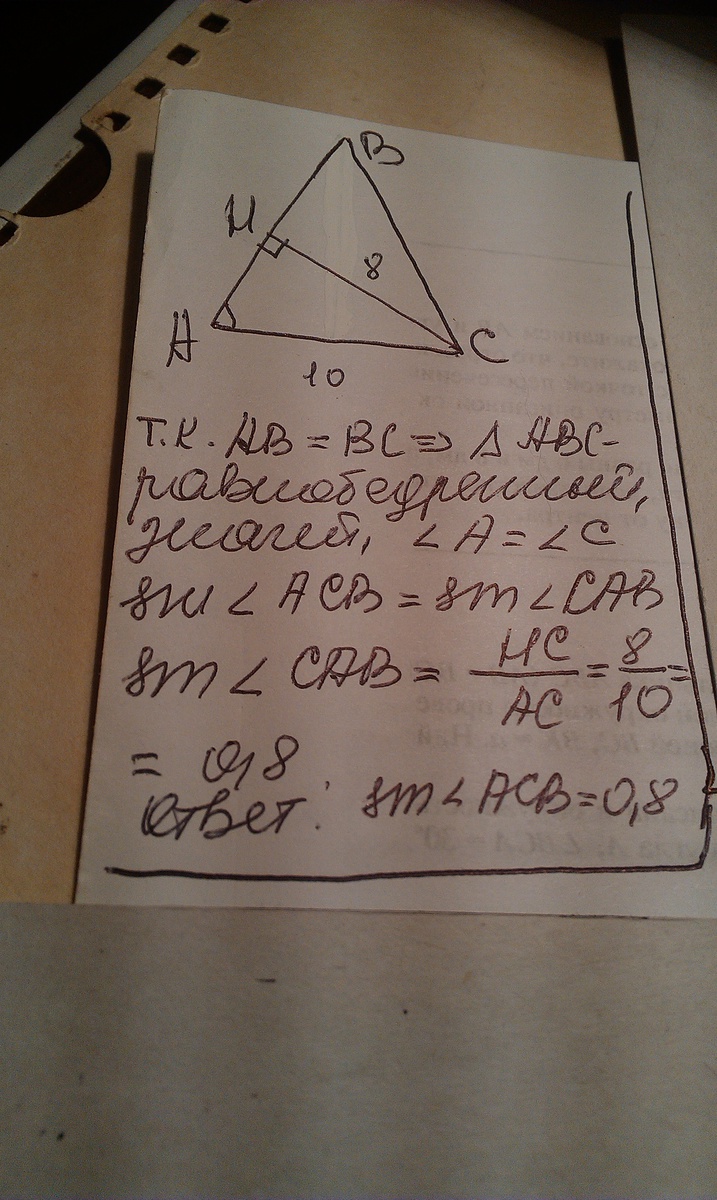 B
H
8
A
C
10
т.к. AB = BC ⇒ Δ ABC-
равнобедренный,
значит, ∠A = ∠C
sin ∠ ACB = sin ∠CAB
sin ∠ CAB = HC/AC = 8/10 =
= 0,8
Ответ: sin ∠ACB = 0,8